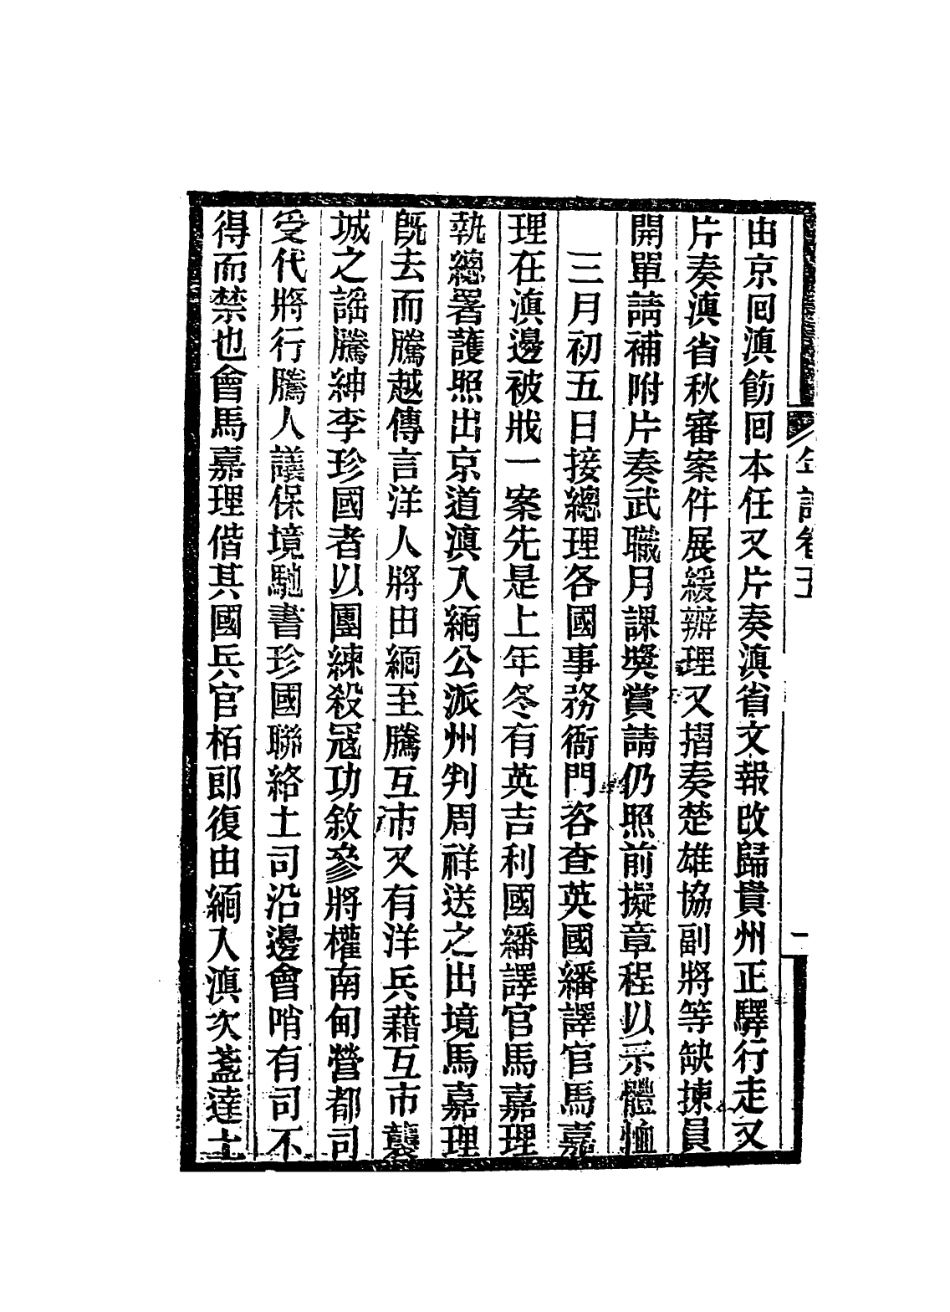 年譜卷五
一
由京回滇飭回本任又片奏滇省文報改歸貴州正驛行走又
片奏滇省秋審案件展緩辦理又摺奏楚雄協副將等缺揀員
開單請補附片奏武職月課獎賞請仍照前擬章程以示體恤
三月初五日接總理各國事務衙門咨查英國繙譯官馬嘉
理在滇邊被戕一案先是上年冬有英吉利國繙譯官馬嘉理
執總署護照出京道滇入緬公派州判周祥送之出境馬嘉理
旣去而騰越傳言洋人將由緬至騰互市又有洋兵藉互市襲
城之謡騰紳李珍國者以團練殺冦功敘參將權南甸營都司
受代將行騰人議保境馳書珍國聯絡土司沿邊會哨有司不
得而禁也會馬嘉理偕其國兵官栢郎復由緬入滇次盞達土